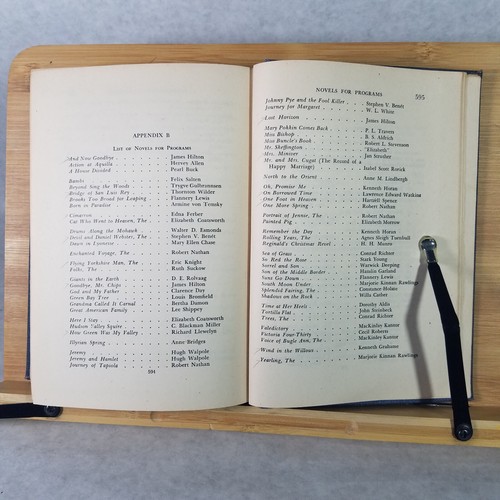 APPENDIX B
LIST OF NOVELS FOR PROGRAMS
And Now Goodbye . . . . James Hilton
Action at Aquila . . . . Hervey Allen
A House Divided . . . . Pearl Buck
Bambi . . . . Felix Salten
Beyond Sing the Woods . . . . Trygve Gulbranssen
Bridge of San Luis Rey . . . . Thornton Wilder
Brooks Too Broad for Leaping . . . . Flannery Lewis
Born in Paradise . . . . Armine von Tempsky
Cimarron . . . . Edna Ferber
Cat Who Went to Heaven, The . . . . Elizabeth Coatsworth
Drums Along the Mohawk . . . . Walter D. Edmonds
Devil and Daniel Webster, The . . . . Stephen V. Benét
Dawn in Lyonesse . . . . Mary Ellen Chase
Enchanted Voyage, The . . . . Robert Nathan
Flying Yorkshire Man, The . . . . Eric Knight
Folks, The . . . . Ruth Suckow
Giants in the Earth . . . . O. E. Rolvaag
Goodbye, Mr. Chips . . . . James Hilton
God and My Father . . . . Clarence Day
Green Bay Tree . . . . Louis Bromfield
Grandma Called It Carnal . . . . Bertha Damon
Great American Family . . . . Lee Shippey
Here I Stay . . . . Elizabeth Coatsworth
Hudson Valley Squire . . . . C. Blackman Miller
How Green Was My Valley . . . . Richard Llewelyn
Illyrian Spring . . . . Anne Bridges
Jeremy . . . . Hugh Walpole
Jeremy and Hamlet . . . . Hugh Walpole
Journey of Tapiola . . . . Robert Nathan
594
NOVELS FOR PROGRAMS 595
Johnny Pye and the Fool Killer . . . . Stephen V. Benét
Journey for Margaret . . . . W. L. White
Lost Horizon . . . . James Hilton
Mary Poppins Comes Back . . . . P. L. Travers
Miss Bishop . . . . B. S. Aldrich
Miss Buncle's Book . . . . Robert L. Stevenson
Mr. Skeffington . . . . "Elizabeth"
Mrs. Miniver . . . . Jan Struther
Mr. and Mrs. Cugat (The Record of a
Happy Marriage) . . . . Isabel Scott Rorick
North to the Orient . . . . Anne M. Lindbergh
Oh, Promise Me . . . . Kenneth Horan
On Borrowed Time . . . . Lawrence Edward Watkins
One Foot in Heaven . . . . Hartzell Spence
One More Spring . . . . Robert Nathan
Portrait of Jennie, The . . . . Robert Nathan
Painted Pig . . . . Elizabeth Morrow
Remember the Day . . . . Kenneth Horan
Rolling Years, The . . . . Agnes Sleigh Turnbull
Reginald's Christmas Revel . . . . H. H. Munro
Sea of Grass . . . . Conrad Richter
So Red the Rose . . . . Stark Young
Sorrel and Son . . . . Warwick Deeping
Son of the Middle Border . . . . Hamlin Garland
Suns Go Down . . . . Flannery Lewis
South Moon Under . . . . Marjorie Kinnan Rawlings
Splendid Fairing, The . . . . Constance Holme
Shadows on the Rock . . . . Willa Cather
Time at Her Heels . . . . Dorothy Aldis
Tortilla Flat . . . . John Steinbeck
Trees, The . . . . Conrad Richter
Valedictory . . . . MacKinlay Kantor
Victoria Four-Thirty . . . . Cecil Roberts
Voice of Bugle Ann, The . . . . MacKinlay Kantor
Wind in the Willows . . . . Kenneth Grahame
Yearling, The . . . . Marjorie Kinnan Rawlings